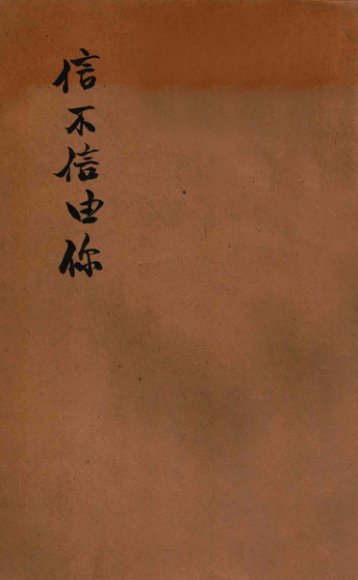 信不信由你